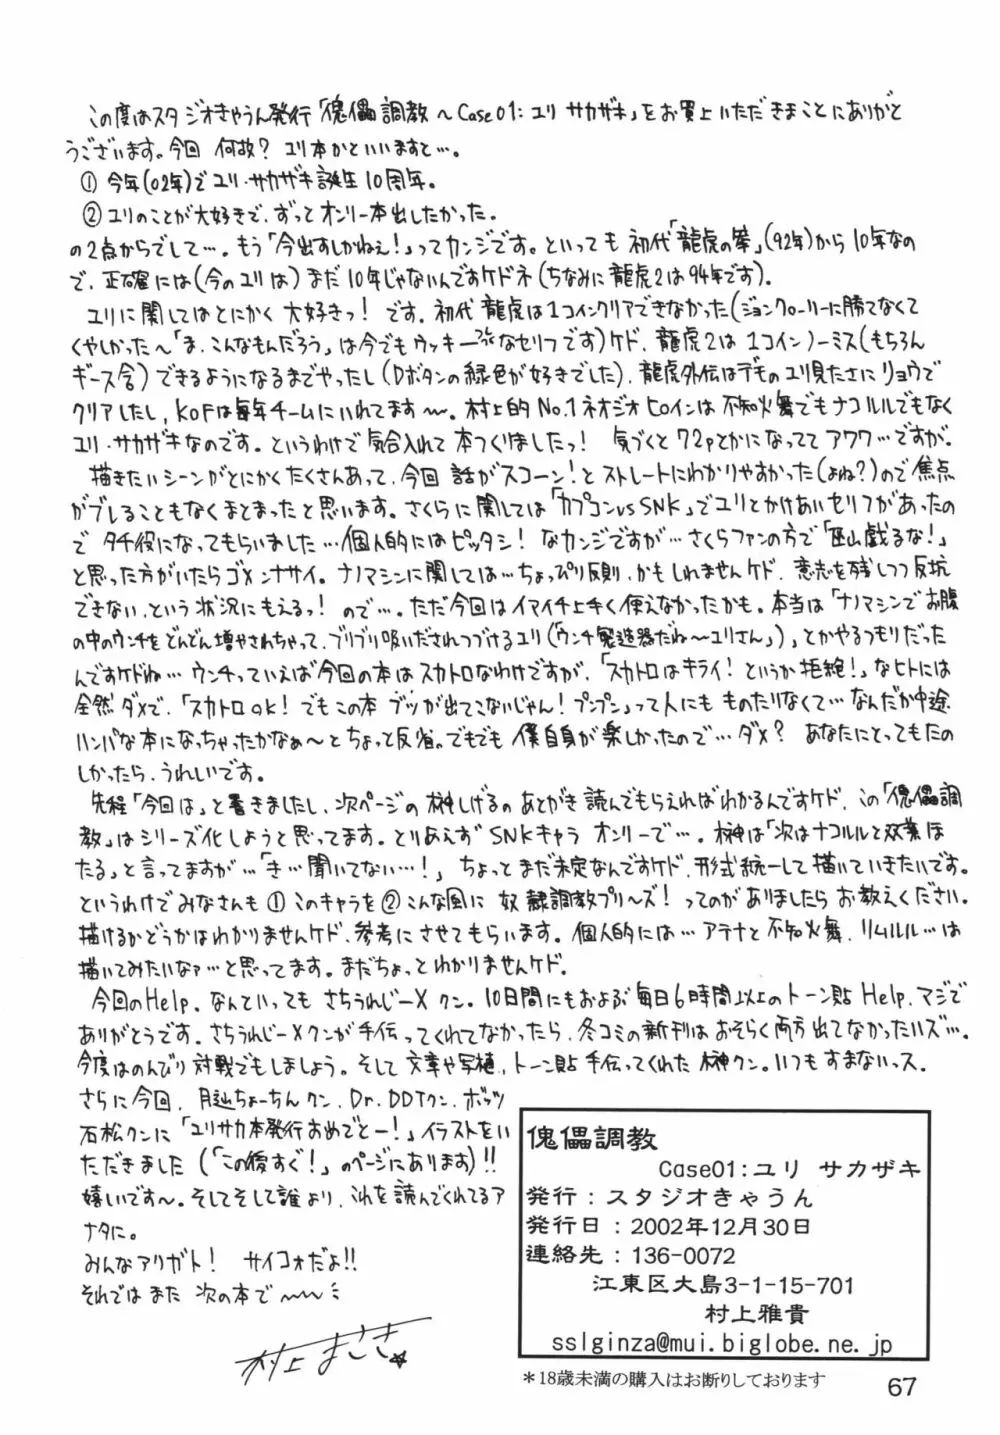 この度はスタジオきゃうん発行「傀儡調教～Case01:ユリ サカザキ」をお買上いただきまことにありがと
うございます。今回 何故？ユリ本かといいますと…。
①今年(02年)でユリ・サカザキ誕生10周年。
②ユリのことが大好きで、ずっとオンリー本出したかった。
の2点からでして…。もう「今出すしかねぇ！」ってカンジです。といっても 初代「龍虎の拳」(92年)から10年なの
で、正確には(今のユリは)まだ10年じゃないんですケドネ(ちなみに龍虎2は94年です)。
ユリに関してはとにかく大好きっ！です。初代龍虎は1コインクリアできなかった(ジョンクローリーに勝てなくて
くやしかった～「ま、こんなもんだろう」は今でもウッキーなセリフです)ケド、龍虎2は1コインノーミス(もちろん
ギース含)できるようになるまでやったし(Dボタンの緑色が好きでした)、龍虎外伝はデモのユリ見たさにリョウで
クリアしたし、KOFは毎年チームにいれてます～。村上的No.1ネオジオヒロインは不知火舞でもナコルルでもなく
ユリ・サカザキなのです。というわけで気合入れて本つくりましたっ！ 気づくと72pとかになっててアワワ…ですが。
描きたいシーンがとにかくたくさんあって、今回 話がスコーン！とストレートにわかりやすかった(よね？)ので焦点
がブレることもなくまとまったと思います。さくらに関しては「カプコンvsSNK」でユリとかけあいセリフがあったの
で タチ役になってもらいました…個人的にはピッタシ！なカンジですが…さくらファンの方で「巫山戯るな！」
と思った方がいたらゴメンナサイ。ナノマシンに関しては…ちょっぴり反則、かもしれませんケド、意志を残しつつ反抗
できない、という状況にもえるっ！ので…。ただ今回はイマイチ上手く使えなかったかも。本当は「ナノマシンでお腹
の中のウンチをどんどん増やされちゃって、ブリブリ吸いだされつづけるユリ(「ウンチ製造器だね～ユリさん」)」とかやるつもりだった
んですケドね…ウンチっていえば今回の本はスカトロなわけですが、「スカトロはキライ！というか拒絶！」なヒトには
全然ダメで、「スカトロok！でもこの本 ブツが出てこないじゃん！プンプン」って人にも ものたりなくて…なんだか中途
ハンパな本になっちゃったかなぁ～とちょっと反省。でもでも 僕自身が楽しかったので…ダメ？ あなたにとってもたの
しかったら、うれしいです。
先程「今回は」と書きましたし、次ページの榊しげるのあとがき読んでもらえればわかるんですケド、この「傀儡調
教」はシリーズ化しようと思ってます。とりあえず SNKキャラ オンリーで…。榊は「次はナコルルと双葉ほ
たる」と言ってますが…「き…聞いてない…！」 ちょっとまだ未定なんですケド、形式統一して描いていきたいです。
というわけでみなさんも①このキャラを②こんな風に 奴隷調教プリ～ズ！ってのがありましたらお教えください。
描けるかどうかはわかりませんケド、参考にさせてもらいます。個人的には…アテナと不知火舞、リムルル…は
描いてみたいなァ…と思ってます。まだちょっとわかりませんケド。
今回のHelp。なんていっても さちうれじーXクン。10日間にもおよぶ毎日6時間以上のトーン貼Help、マジで
ありがとうです。さちうれじーXクンが手伝ってくれてなかったら、冬コミの新刊はおそらく両方出てなかったハズ…。
今度はのんびり対戦でもしましょう。そして文章や写植、トーン貼手伝ってくれた榊クン。いつもすまないっス。
さらに今回、月辿ちょーちんクン、Dr.DDTクン、ボッツ
石松クンに「ユリサカ本発行おめでとー！」イラストをい
ただきました(「この後すぐ！」のページにあります)!!
嬉しいです～。そしてそして誰より、これを読んでくれてるア
ナタに。
みんなアリガト！ サイコォだよ!!
それではまた 次の本で～
村上まさき☆
傀儡調教
Case01:ユリ サカザキ
発行：スタジオきゃうん
発行日：2002年12月30日
連絡先：136-0072
江東区大島3-1-15-701
村上雅貴
sslginza@mui.biglobe.ne.jp
＊18歳未満の購入はお断りしております
67